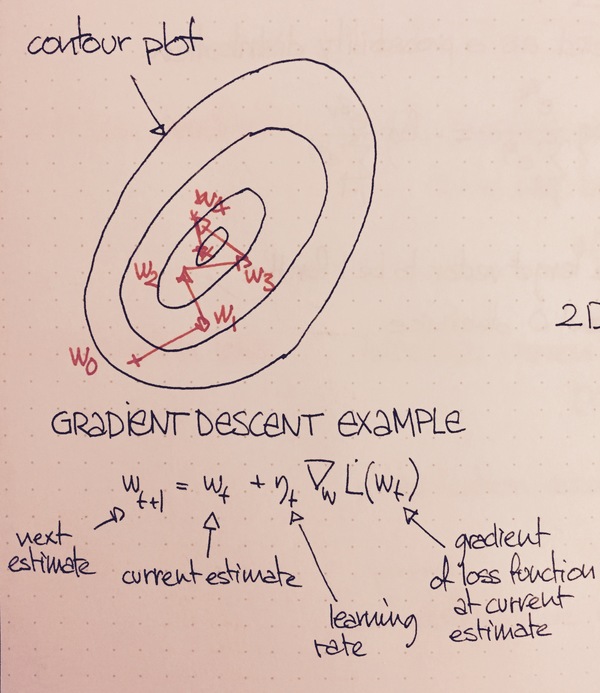 contour plot
w4
w2
w3
w1
w0
2D
GRADIENT DESCENT EXAMPLE
w_{t+1} = w_t + η_t ∇_w L(w_t)
next
estimate
current estimate
learning
rate
gradient
of loss function
at current
estimate